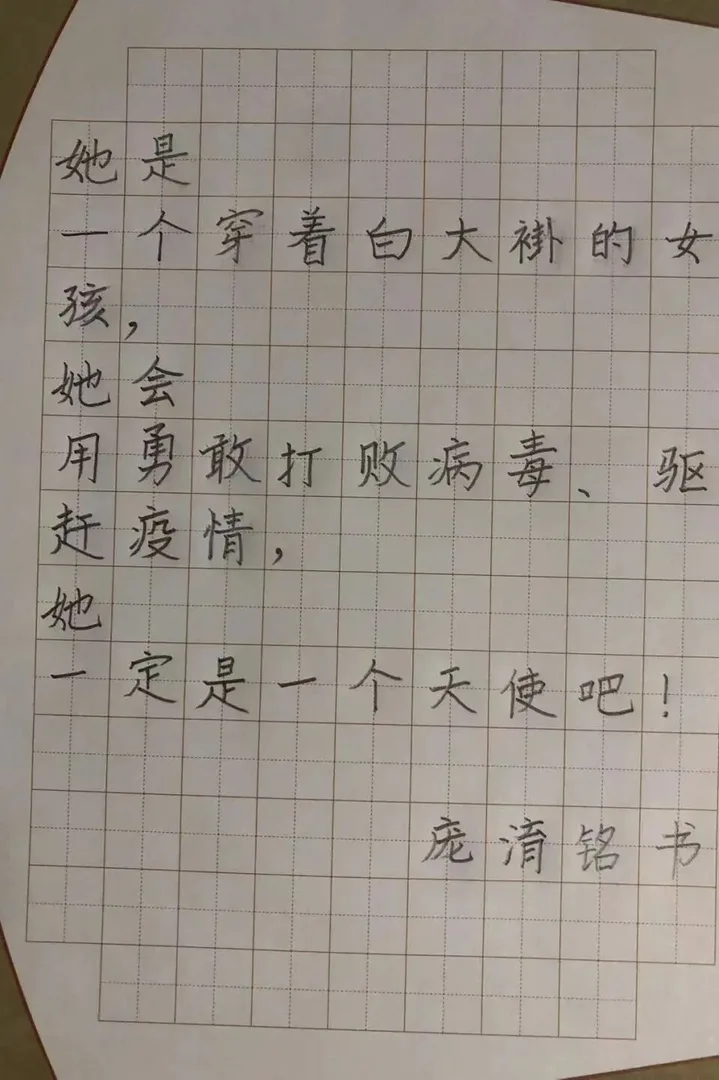 她是
一个穿着白大褂的女
孩，
她会
用勇敢打败病毒、驱
赶疫情，
她
一定是一个天使吧！
庞淯铭书